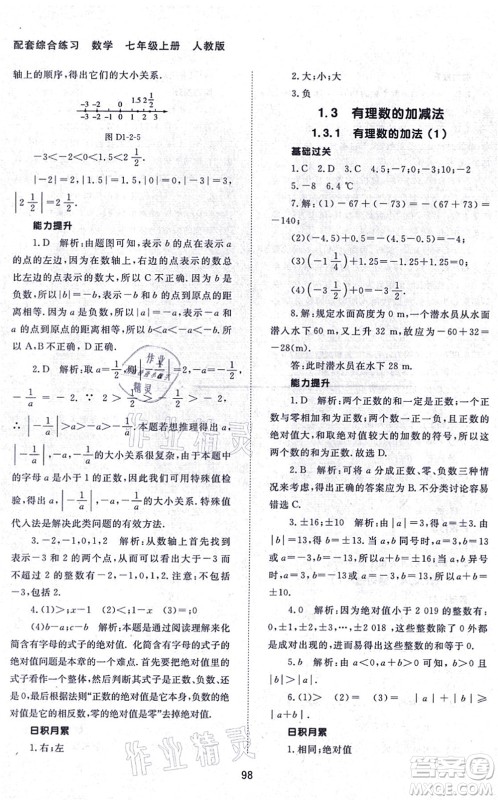 配套综合练习 数学 七年级上册 人教版
轴上的顺序,得出它们的大小关系.
-3 -2 -1 0 1 1.5 2 2½ 3
-3 -2 -1 0 1 2 3
图 D1-2-5
-3<-2<0<1.5<2½.
|-2|=2,|1.5|=1.5,|0|=0,|-3|=3,
|2½|=2½.
能力提升
1.D 解析:由题图可知,表示 b 的点在表示 a
的点的左边,因为在数轴上,右边的点表示的数总
比左边的点表示的数大,所以 C 不正确. 因为 b 是
负数,所以-b 是正数,表示-b 的点到原点的距离
和表示 b 的点到原点的距离相等. 因为表示 b 的点
到原点的距离大于表示 a 的点到原点的距离,所以
将有理数 a,b,-a,-b 按从小到大的顺序排列为
b<-a<a<-b,所以
A,B 不正确,D 正确.
2.D 解析:取 a=½,则
-1/a=-2. ∵ 2>½>-½>-2,∴
|-1/a|>a>-a>-1/a. 本题若想推理得出-a,
|-1/a|,-1/a 的大小关系很复杂,由于本题中
的字母 a 是小于 1 的正数,所以可以通过特殊值检
验,得出-a,|-1/a|,-1/a 的大小关系. 特殊值
代入法是解决此类问题的有效方法.
3.-2,-1,0,1,2 解析:从数轴上首先找到
表示-3 和 2 的两个点,从而可以看出大于-3 而
不超过 2 的整数有-2,-1,0,1,2.
4.(1)>;x-1 (2)<;1-x (3)>
(4)b-a;<;b-a 解析:通过阅读理解来简化
简含有字母的式子的绝对值,含有字母的式子的
绝对值问题是本章的一个难点. 首先要看绝对值里
的式子整个代数式是正数还是负数,正数的绝对值
是它本身,零的绝对值是零,负数的绝对值是它的
相反数,然后再化简.
日积月累
1.右;左
2.大;小;大
3.负
1.3 有理数的加减法
1.3.1 有理数的加法(1)
基础过关
1.C 2.D 3.C 4.5;-7;0;-3;-10;-2
5.-8 6.4 ℃
7.解:(1)(-67)+(-73)=-(67+73)=
-140;
(2)(-8)+4.5=-(8-4.5)=-3.5;
(3)(-1¼)+1.25=-1.25+1.25=0;
(4)(-3½)+0=-3½.
8.解:规定水面高度为 0 m,一个潜水员从水面
潜入水下 60 m,又上升 32 m,故为(-60)+32=
-28(m).
答:此时潜水员在水下 28 m.
能力提升
1.D 解析:两个加数可以是一个正数和一个
负数,也可以是两个正数,也可以是一个正数和一个
零. 正数与零相加和为正数,一个正数与一个负数
的绝对值大,取绝对值较大的加数的符号,并用较大
的绝对值减去较小的绝对值,和为正数. 故选 D.
方法归纳:把有理数分成正数、零、负数
时,要按一定的顺序和标准(不能遗漏)分类讨论容易
错选 C.
2.±16;±10 解析:由|a|=3,得 a=±3,由
|b|=13,得 b=±13,故 a+b 的值可分为两种情况:
同号时,a+b=±16;异号时,a+b=±10.
3.±8 解析:因为|a|=3,|b|=5,所以 a=
±3,b=±5. 又因为 a,b 同号,所以 a+b=±8.
4.0 解析:因为绝对值小于 2 019 的整数有
0,±1,±2,±3,…,±2 018,除 0 外,其余的数都
是成对出现的,并且互为相反数,所以它们的和是 0.
5.b 解析:由 a<0,a+b>0 可知 b>0,且
|b|>|a|,所以 a+|a|+|b|=0+b=b.
日积月累
1.相同;绝对值
98
作业精灵